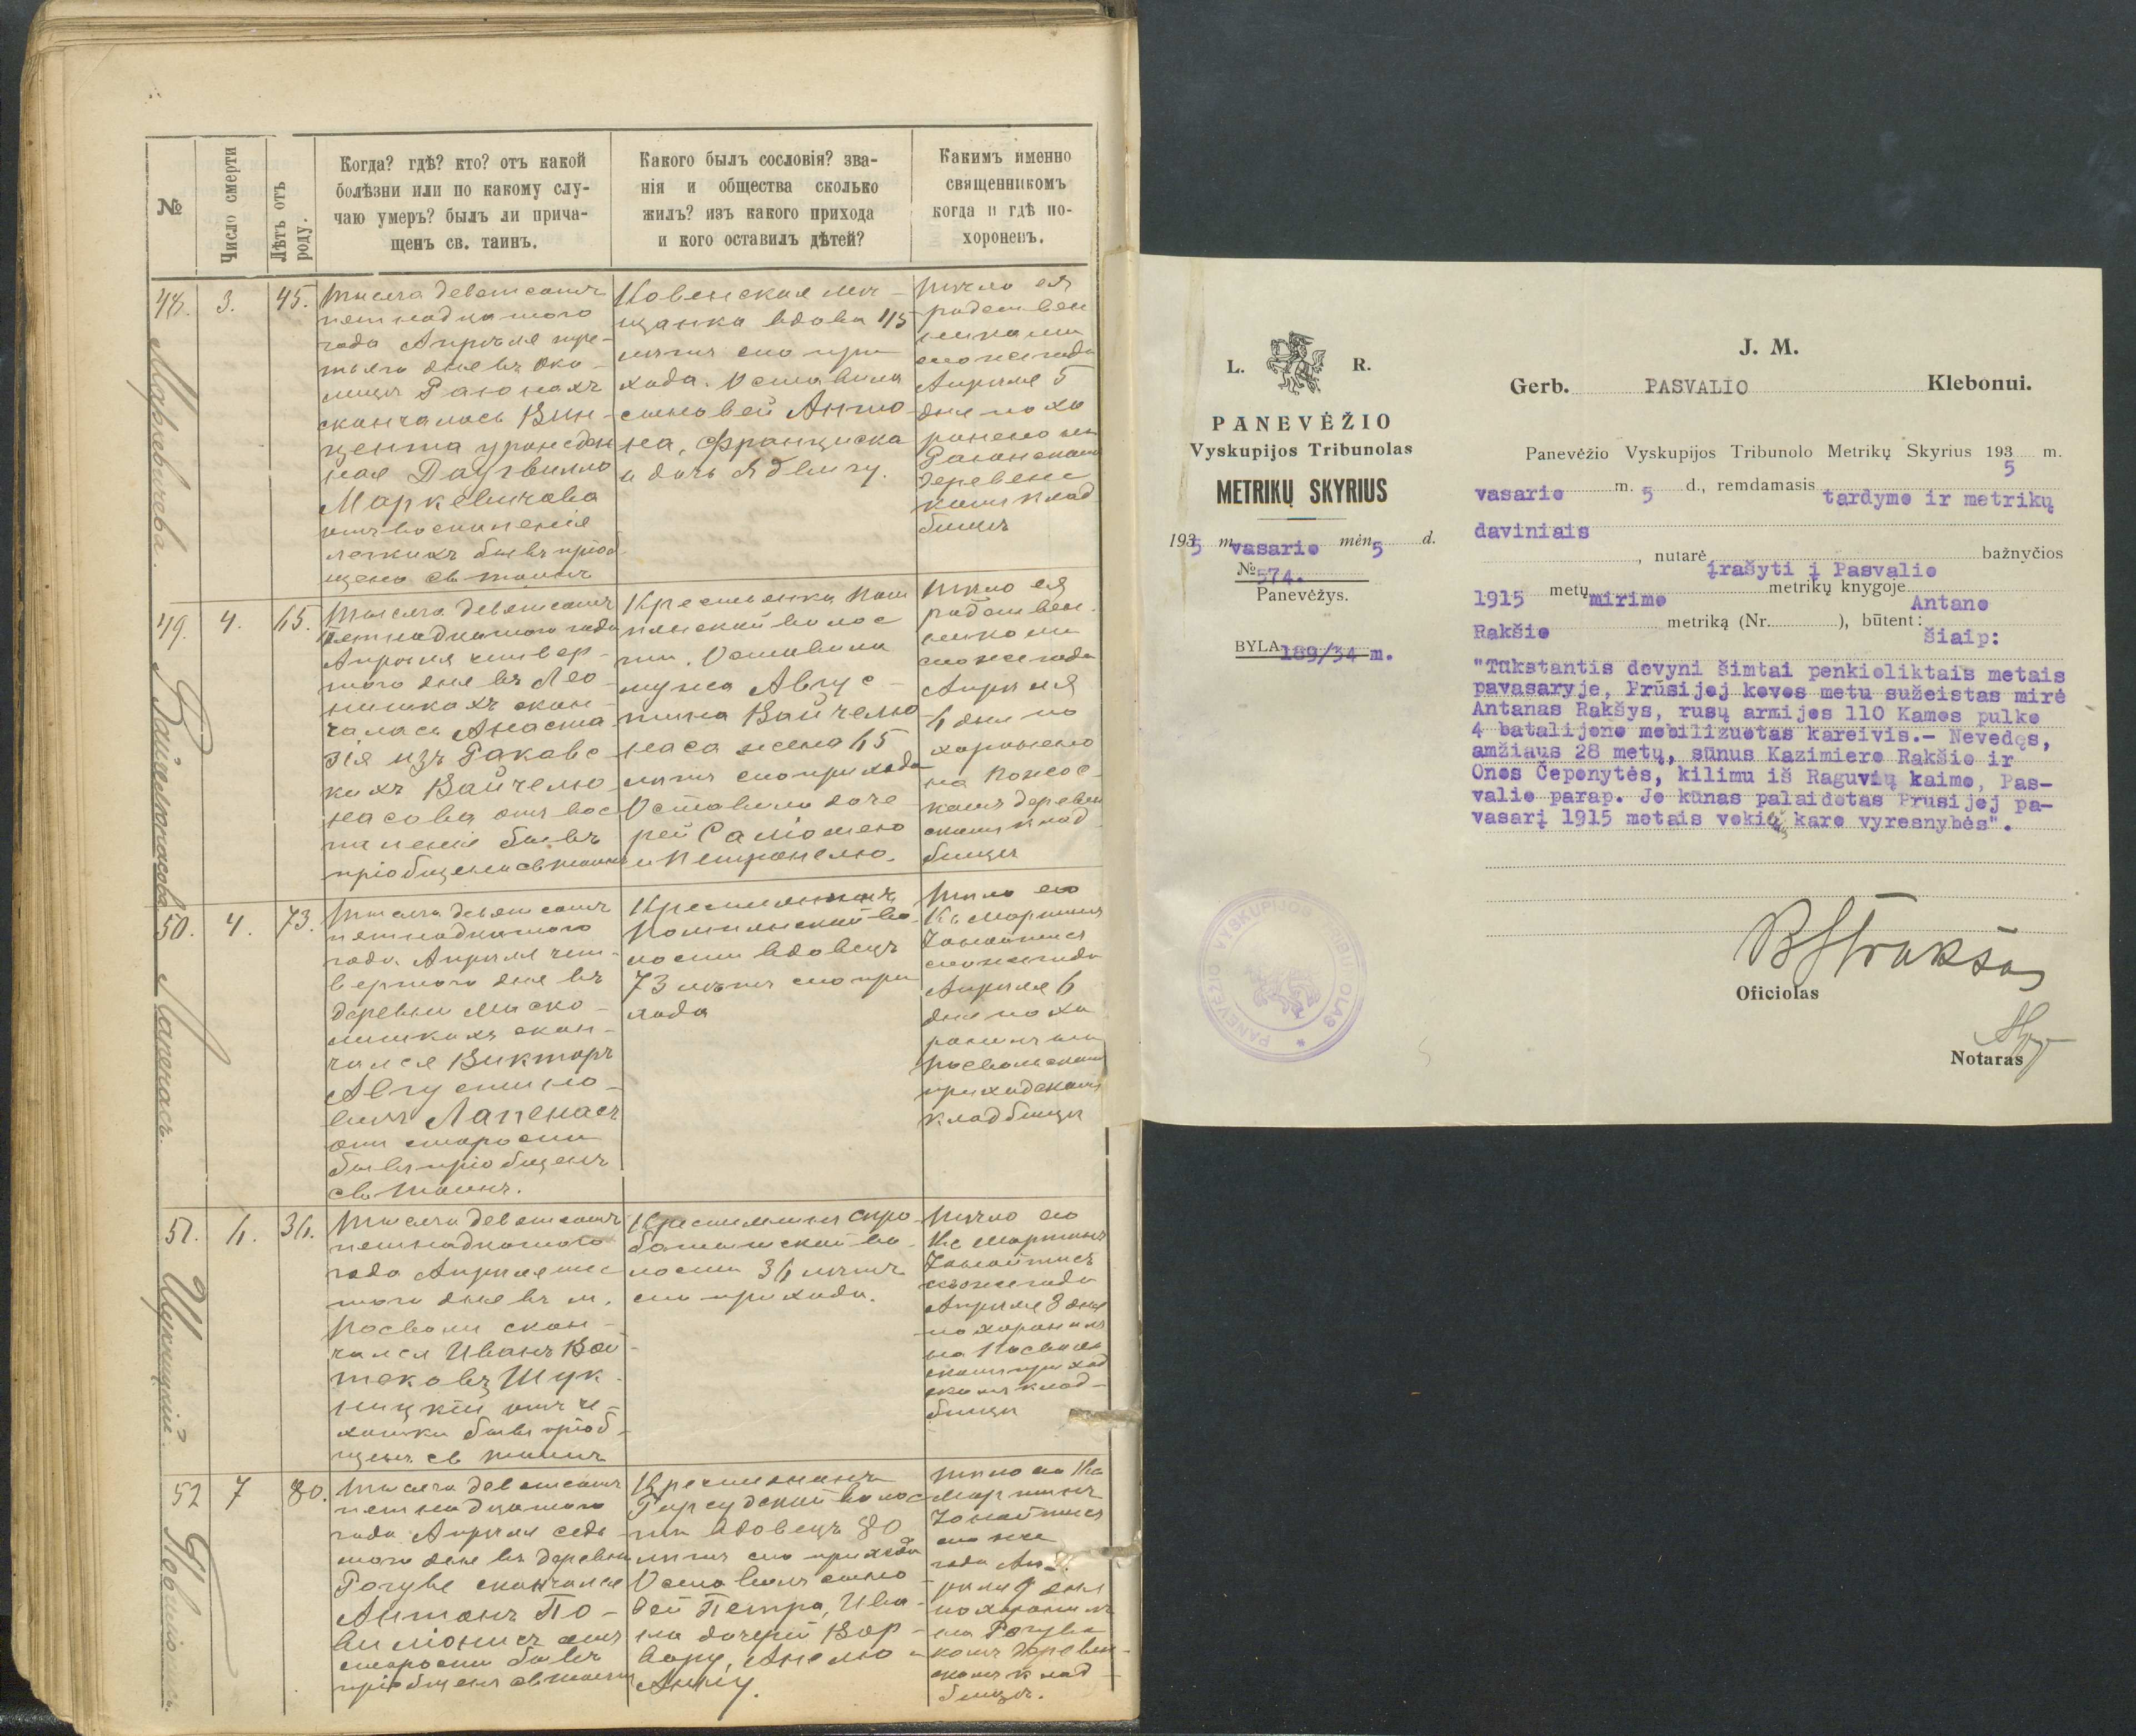 №
Число смерти
Лѣтъ отъ роду.
Когда? гдѣ? кто? отъ какой
болѣзни или по какому слу-
чаю умеръ? былъ ли прича-
щенъ св. таинъ.
Какого былъ сословія? зва-
нія и общества сколько
жилъ? изъ какого прихода
и кого оставилъ дѣтей?
Какимъ именно
священникомъ
когда и гдѣ по-
хороненъ.
48.
Маркевичева.
3.
45.
Тысяча девятсотъ
пятнадцатого
года Апрѣля тре-
тьяго дня въ око-
лицѣ Раюнахъ
скончалась Вин-
цента урожден
ная Даугвилло
Маркевичова
отъ воспаленія
легкихъ бывъ пріоб
щена св таинъ
Ковенская мѣ-
щанка вдова 45
лѣтъ сего при
хода. Оставила
сыновей Анто-
на, Франциска
и дочь Ядвигу.
Тѣло ея
родствен
никами
сего же года
Апрѣля 5
дня по хо
ронено на
Раюнскомъ
деревен
комъ клад
бищѣ
49.
Вайчелюнасова
4.
65.
Тысяча девятсотъ
пятнадцатого года
Апрѣля четвер-
того дня въ Лео-
нишкахъ скон-
чалась Анаста
зія изъ Раковс
кихъ Вайчелю
насова отъ вос
паленія бывъ
пріобщена св таинъ
Крестьянка Пом
пянской волос
ти. Оставила
мужа Авгус-
тина Вайчелю
наса жена 65
лѣтъ сего прихода
Оставила доче-
рей Саліомею
и Петронелю.
Тѣло ея
родствен.
никами
сего же года
Апрѣля
6 дня по
хоронено
комъ деревен
скомъ клад
бищѣ
50.
Лапенасъ.
4.
73.
Тысяча девятсотъ
пятнадцатого
года Апрѣля чет-
вертого дня въ
деревни
скон-
чался Викторъ
Августино-
вичъ Лапенасъ
отъ старости
бывъ пріобщенъ
св таинъ.
Крестьянинъ
Помпянской во-
лости вдовецъ
73 лѣтъ сего при
хода
Тѣло его
Кс Мартинъ
сего же года
Апрѣля 6
дня по хо
ронилъ на
Посвольскомъ
приходскомъ
кладбищѣ
51.
Шукницкій.
6.
36.
Тысяча девятсотъ
пятнадцатого
года Апрѣля шес
того дня въ м.
Посволи скон-
чался Иванъ Вои-
тековъ Шук-
ницкій отъ ча-
хотки бывъ пріоб-
щенъ св таинъ
Крестьянинъ
волости 36 лѣтъ
сего прихода.
Тѣло его
Кс Мартинъ
Апрѣля 8 дня
похоронилъ
на Посволь
скомъ приход
скомъ клад-
бищѣ
52
Повиліонисъ.
7
80.
Тысяча девятсотъ
пятнадцатого
года Апрѣля седь
мого дня въ деревни
Рогуве скончался
Антонъ По-
виліонисъ отъ
старости бывъ
пріобщенъ св таинъ
Крестьянинъ
волос
ти вдовецъ 80
лѣтъ сего прихода
Оставилъ сыно-
вей Петра, Ива-
на дочерей Вар-
вару, Анелю и
Анну.
Тѣло его Кс
Мартинъ
сего же
года Ап-
рѣля 9 дня
похоронилъ
на Рогувс
комъ деревен-
скомъ клад-
бищѣ.
L. R.
PANEVĖŽIO
Vyskupijos Tribunolas
METRIKŲ SKYRIUS
1935 m. vasario mėn. 5 d.
№ 574.
Panevėžys.
BYLA 189/34 m.
PANEVĖŽIO VYSKUPIJOS TRIBUNOLAS
J. M.
Gerb. PASVALIO Klebonui.
Panevėžio Vyskupijos Tribunolo Metrikų Skyrius 1935 m.
vasario m. 5 d., remdamasis tardymo ir metrikų
daviniais
, nutarė įrašyti į Pasvalio bažnyčios
1915 metų mirimo metrikų knygoje Antano
Rakšio metriką (Nr. ), būtent: šiaip:
"Tūkstantis devyni šimtai penkioliktais metais
pavasaryje, Prūsijoj kovos metu sužeistas mirė
Antanas Rakšys, rusų armijos 110 Kamos pulko
4 batalijono mobilizuotas kareivis.- Nevedęs,
amžiaus 28 metų, sūnus Kazimiero Rakšio ir
Onos Čeponytės, kilimu iš Raguvių kaimo, Pas-
valio parap. Jo kūnas palaidotas Prusijoj pa-
vasarį 1915 metais vokiečių karo vyresnybės".
BStrakšas
Oficiolas
Notaras